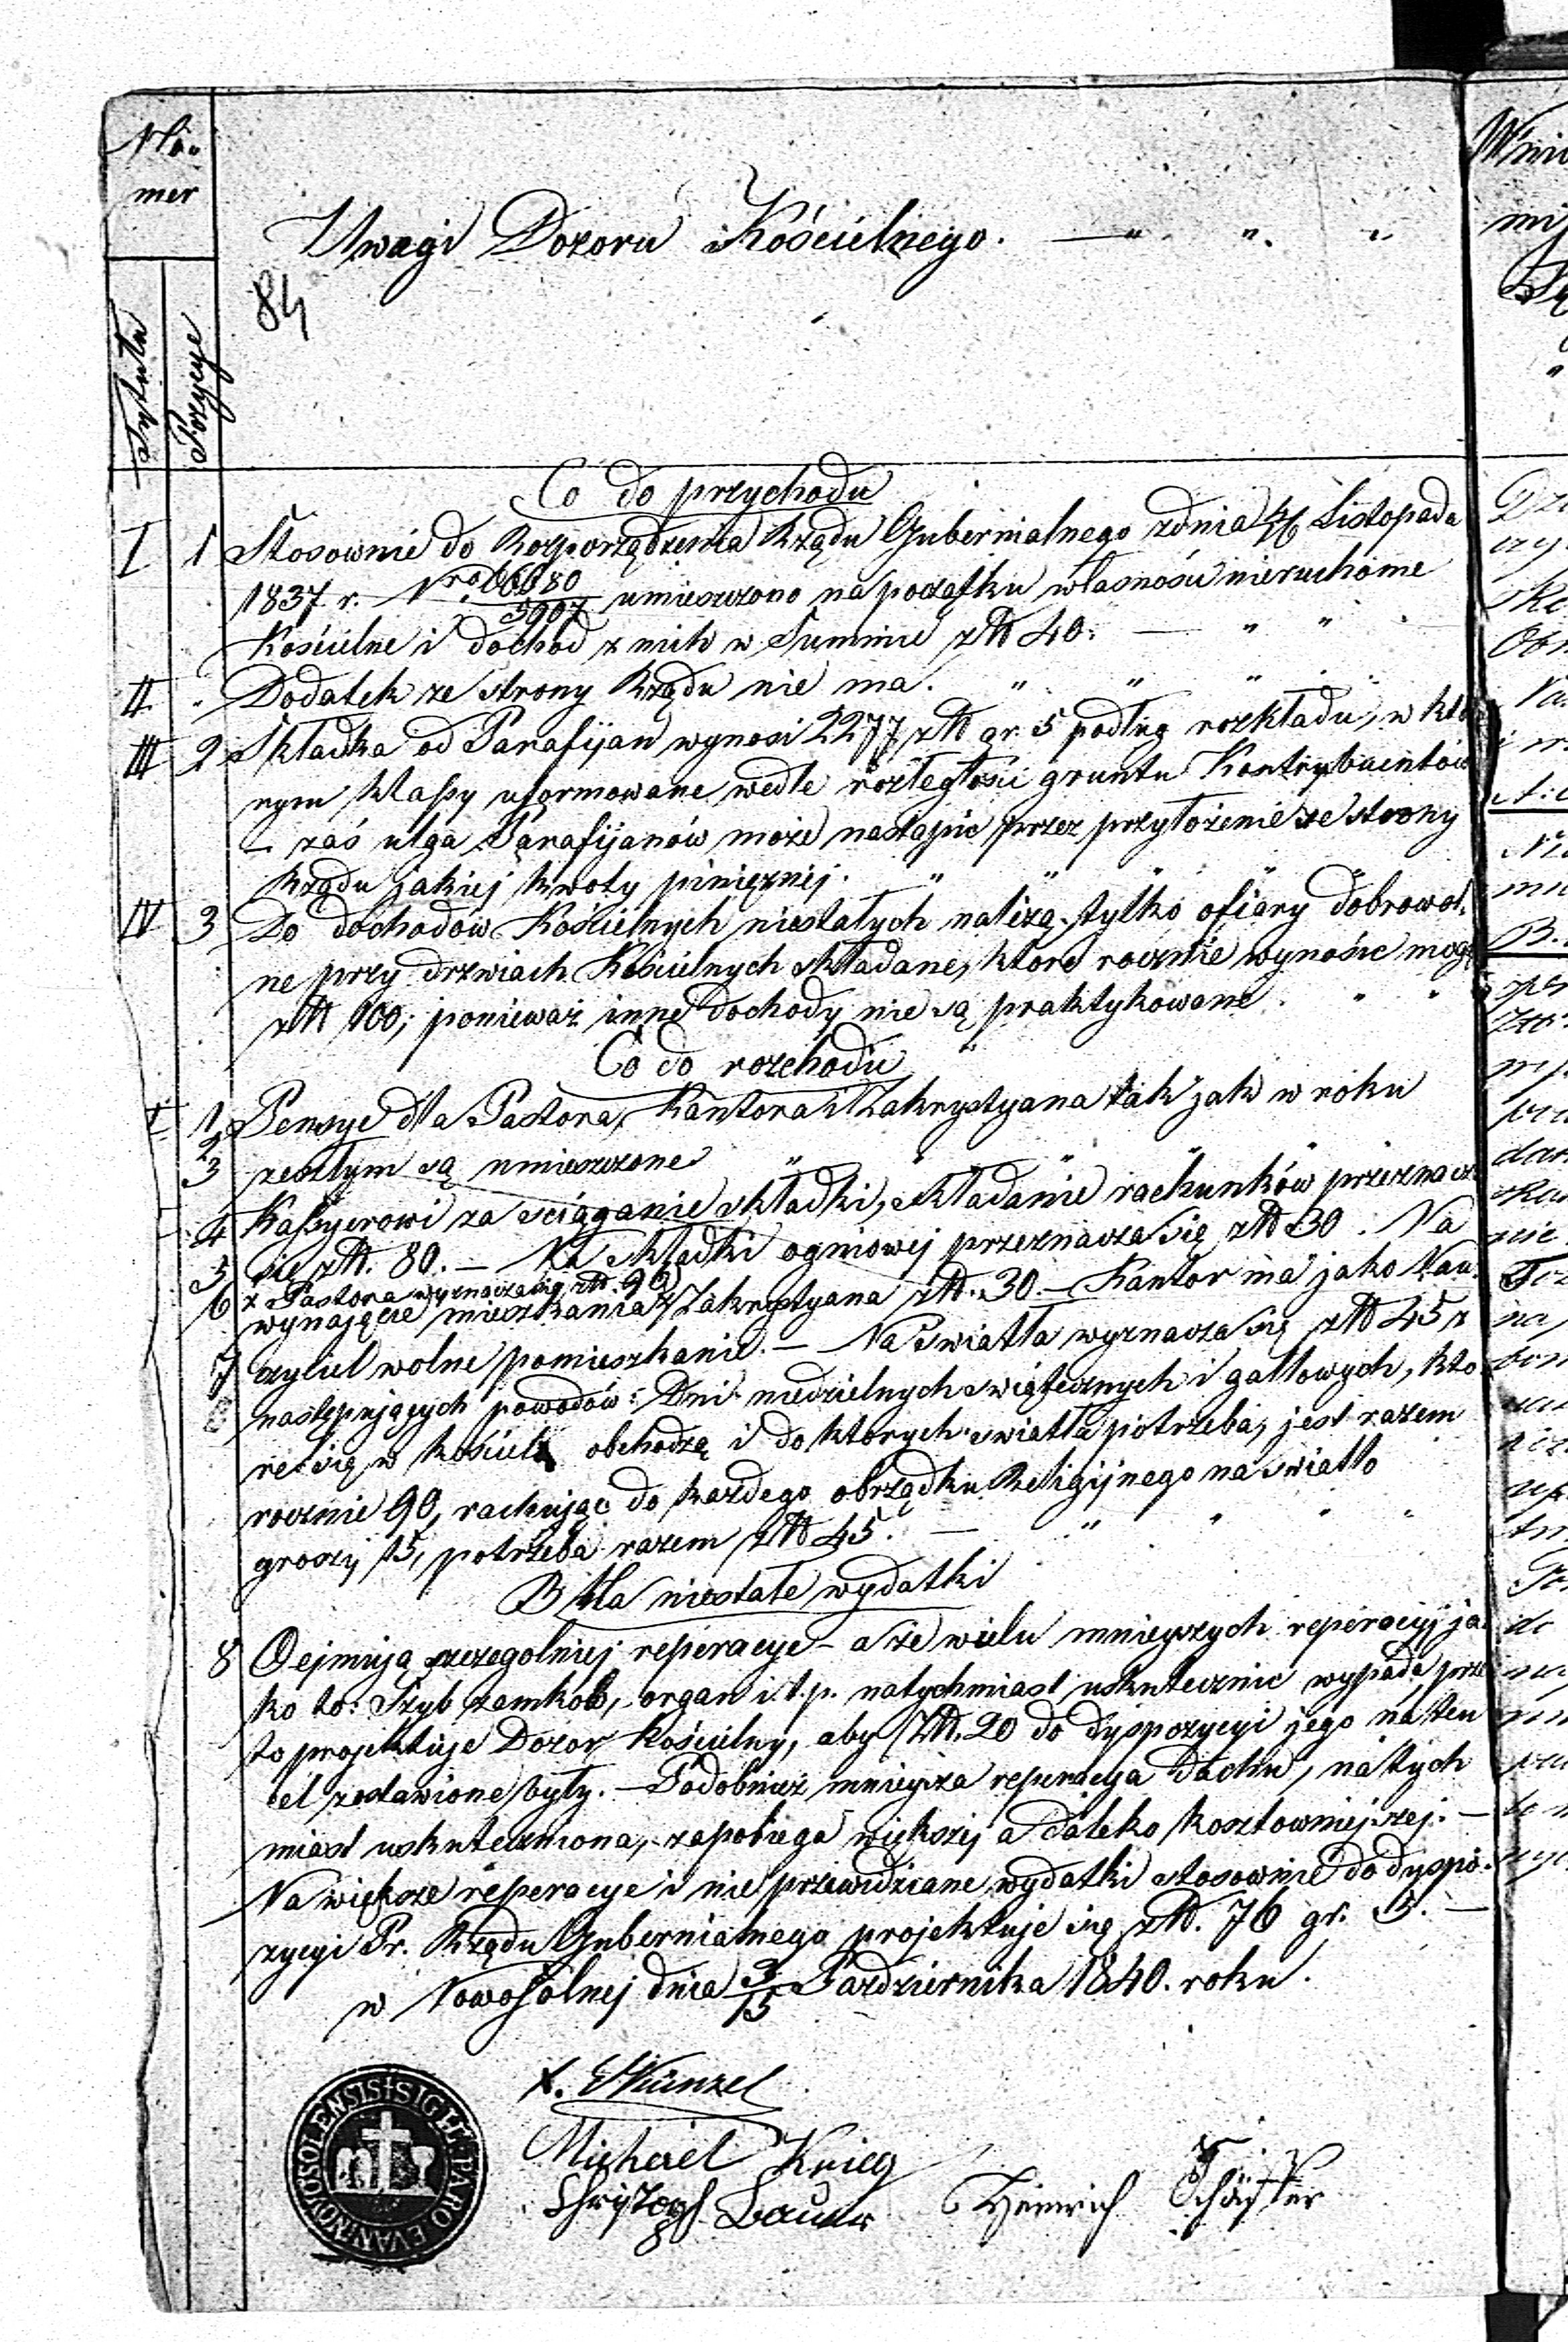 No-
mer
Uwagi Dozoru Kościelnego. — " " "
84
Tytuły
Pozycye
Co do przychodu
I 1 Stosownie do Rozporządzenia Rządu Gubernialnego z dnia Listopada
1837 r. Nro umieszczono na początku własności nieruchome
Kościelne i dochod z nich w Summie złt 40. — " "
II - Dodatek ze strony Rządu nie ma. " " " "
III 2 Składka od Parafijan wynosi 2277 złt gr. 5 podług rozkładu, w któ-
rym klassy uformowane wedle rozległości gruntu Kontrybuentów
— zaś ulga Parafijanów może nastąpić przez przyłożenie ze strony
Rządu jakiej kwoty pinięznej. " " " "
IV 3 Do dochodów Kościelnych niestałych naliżą tylko ofiary dobrowol-
ne przy drzwiach Kościelnych składane, ktore rocznie wynośic mogą
złt 100; ponieważ inne dochody nie są praktykowane. " "
Co do rozchodu
I 1 Pensye dla Pastora, Kantora i Zakrystyana tak jak w roku
2
3 zeszłym są umieszczone " " "
4 Kassyerowi za sciąganie składki, składanie rachunków przeznacza
5 się złt. 80. — Na składki ogniowej przeznacza się złt 30. Na
x Pastora wyznacza się złt. 90
6 wynajęcie mieszkania x Zakrystyana złt. 30. — Kantor ma jako Nau-
7 czyciel wolne pomieszkanie. — Na swiatła wyznacza się złt 45 z
następujących powodów: Dni niedzielnych swiątecznych i galowych, kto-
re się w kościele obchodzą i do ktorych swiatła potrzeba, jest razem
rocznie 90, rachując do każdego obrządku Religijnego na swiatło
groszy 15, potrzeba razem złt 45. — " " " "
B Na niestałe wydatki
8 Oejmują szczegolniej reperacye — a że wielu mnieyszych reperacyj ja-
ko to: Szyb zamkob, organ i t. p. natychmiast uskutecznic wypada, prze-
to projektuje Dozor Kościelny, aby złt. 20 do dyspozycyi jego na ten
cel zostawione były. — Podobnież mnieysza reperacya dachu, natych
miast uskuteczniona, zapobiega większej a daleko kosztowniejszej. —
Na większe reperacye i nie przewidziane wydatki stosownie do dyspo-
zycyi Pr. Rządu Gubernialnego projektuje się złt. 76 gr. 5. —
w Nowosolnej dnia 3/15 Pazdziernika 1840. roku.
Künzel
Michael Krieg
Christoph Bauer Heinrich Schäffer
SIGILL PARO EVAN NOVOSOLENSIS